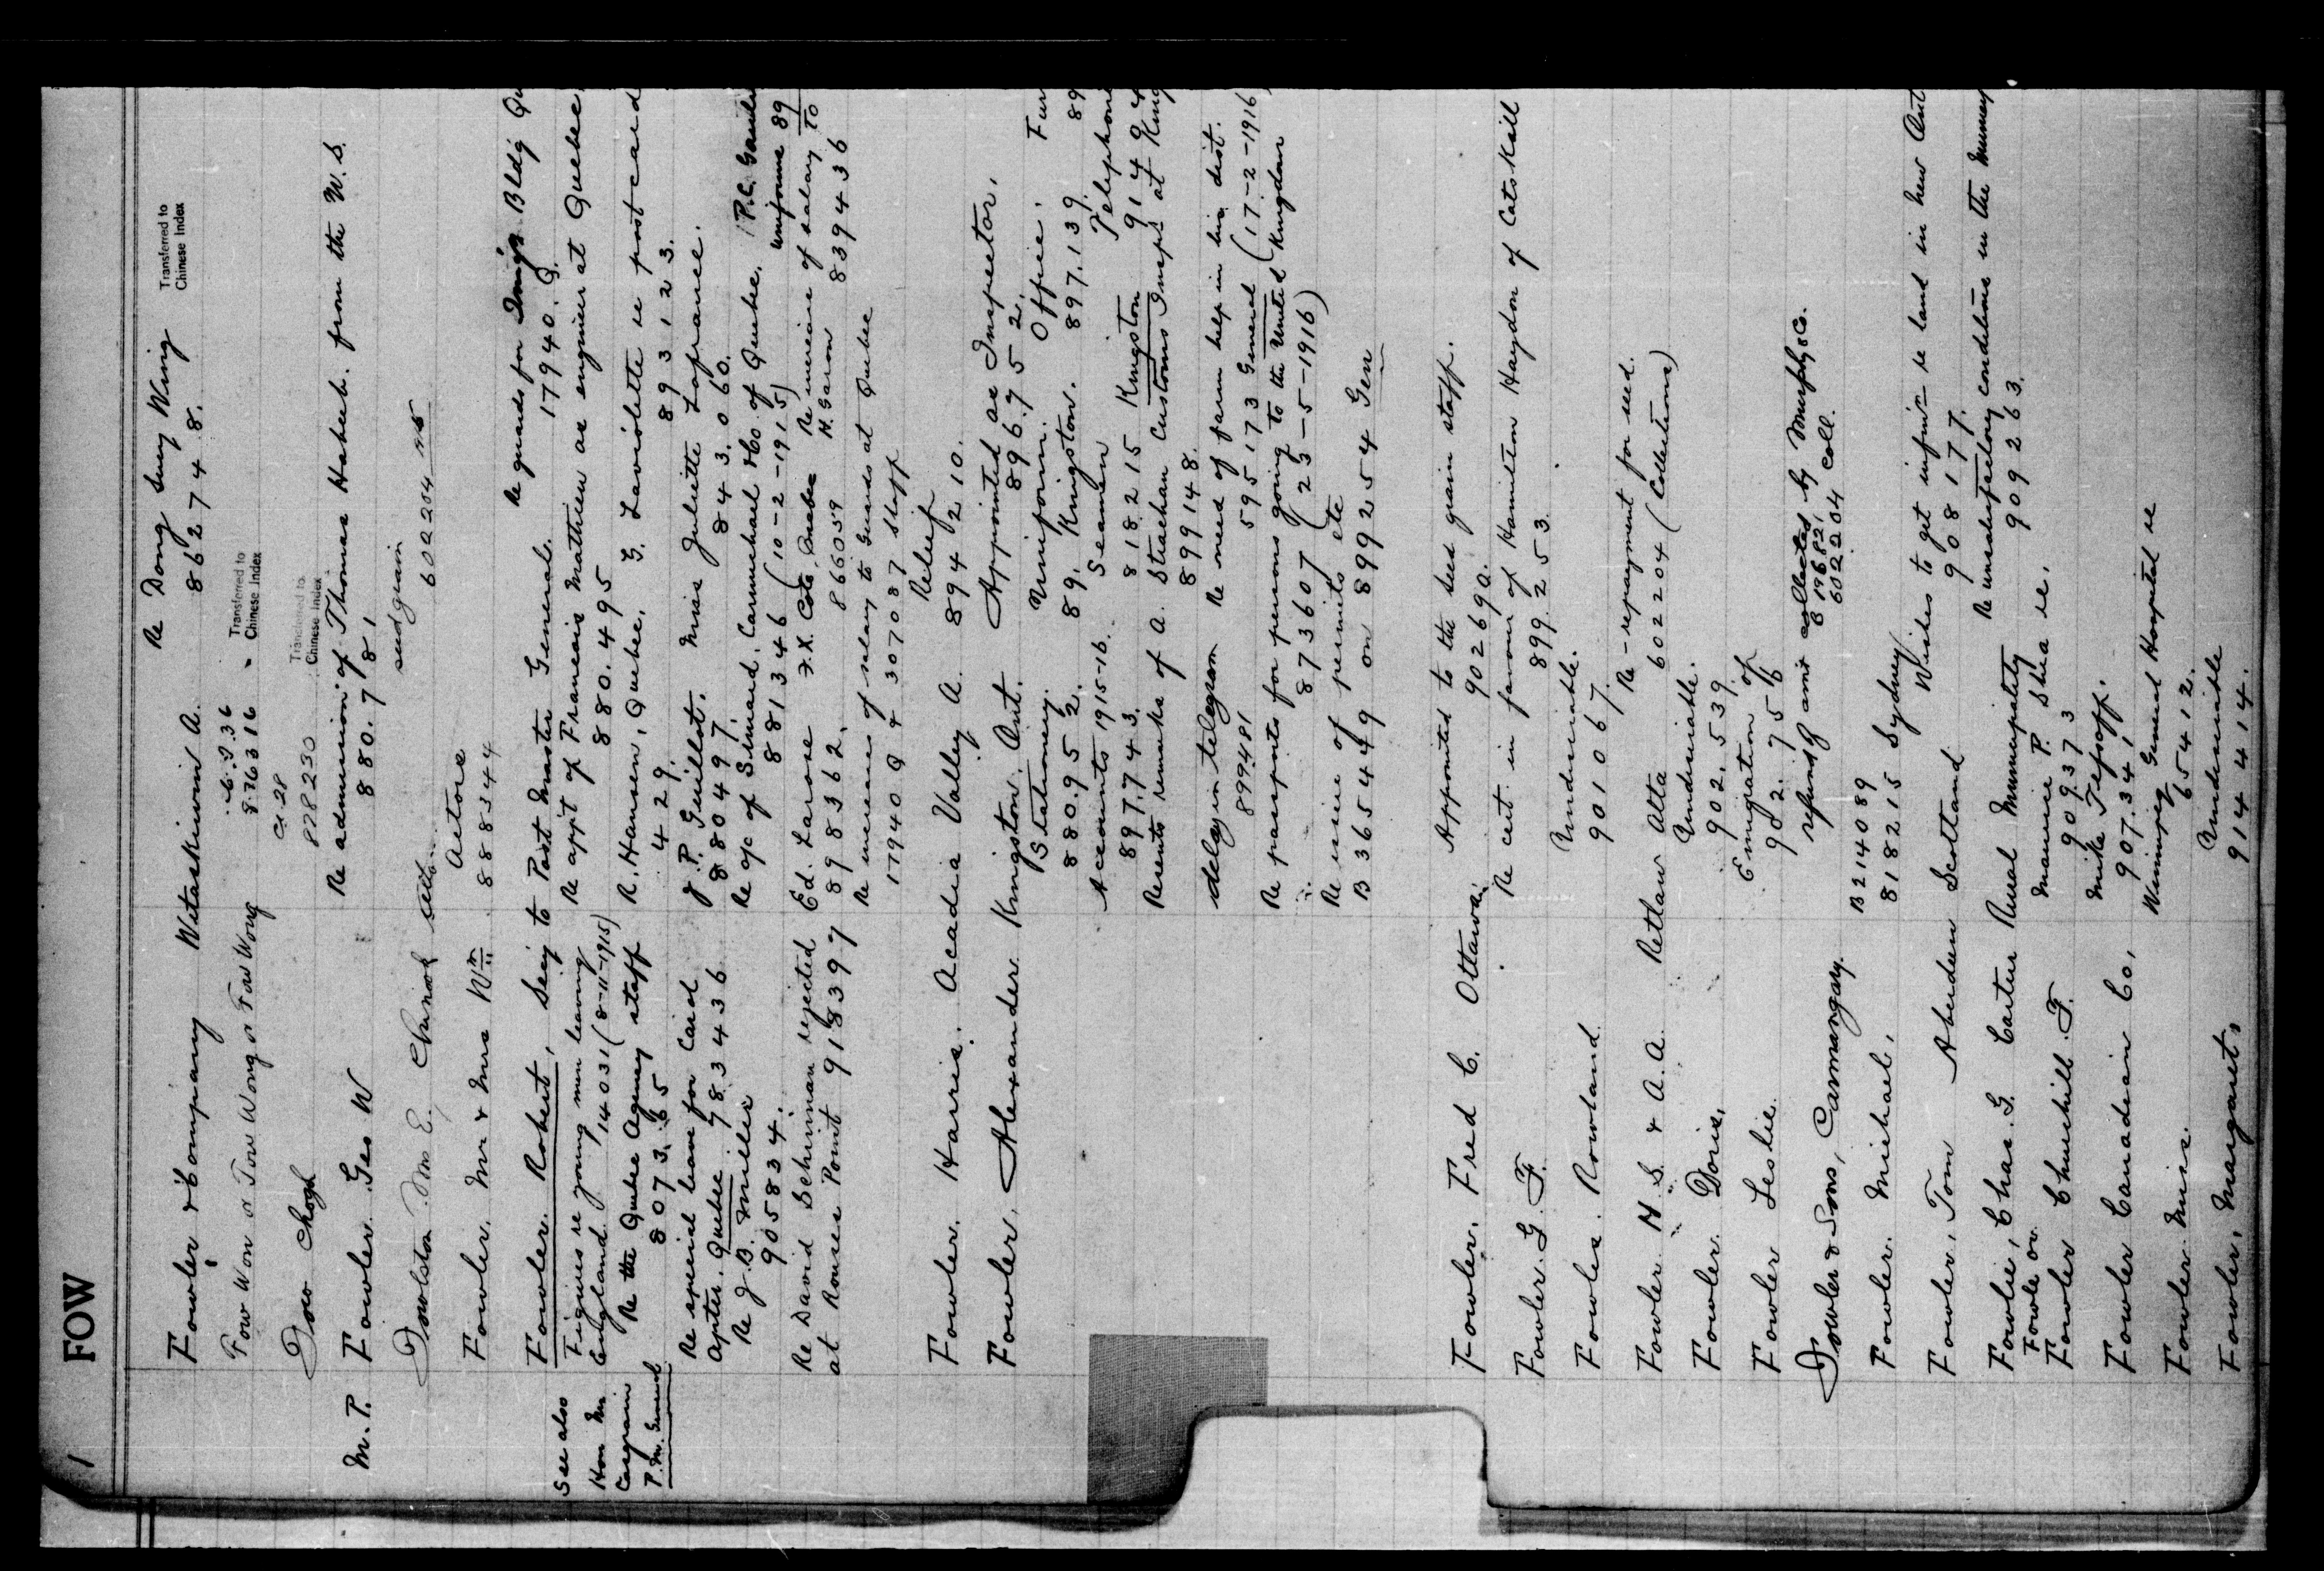 1 FOW
Fowler & Company Wetaskiwin A. Re Dong Suey Wing Transferred to
862748. Chinese Index
Fow Won or Fow Wong or Fow Wong 876316 Transferred to
Chinese Index
Fow Chogh 828230 Transferred to
Chinese Index
M.P. Fowler Geo W Re admission of Thomas Habeeb. from the U.S.
880.781
Fowlston Mrs E. Chinook Alta seed grain
602204
Fowler. Mr & Mrs Wm Actors
888344
Fowler. Robert, Secy to Post Master General. Re guards for Immig'n Bldg Qu
17940. Q.
See also
Hon Mr
Casgrain
P.M. General
Figures re young men leaving
England 14031 (8-11-1915)
Re appt of Francois Mathieu as engineer at Quebec
880.495
Re the Quebec Agency staff
8073.65
R. Hansen, Quebec, G. Laviolette re post card
4429. 893123.
Re special leave for Card
Apter. Quebec 783436
J.P. Guillot. Miss Juliette Lafrance.
880497 843.060.
Re J.B. Miller
905834.
Re a/c of Simard, Carmichael & Co of Quebec. P.C. 
881346 (10-2-1915) uniforms 89
Re David Schinman rejected
at Rouses Point 918397
Ed. Larose F.X. Coté, Quebec Re increase of salary to
898362. 866059 H. Garon 839436
Re increase of salary to Guards at Quebec
17940 Q & 307087 Staff
Fowler. Harris. Acadia Valley A. Relief
894210.
Fowler. Alexander Kingston, Ont. Appointed as Inspector.
896.752.
Stationery. Uniform. Office. Fur
880.952. 89, Kingston. 897,139. 89
Accounts 1915-16. Seamen Telephone
897.743. 818215 Kingston 91404
Resents remarks of A. Strachan Customs Insp'r at King
899148.
delay in telegram Re need of farm help in his dist.
899481 595173 General (17-2-1916)
Re passports for persons going to the United Kingdom
873607 (23-5-1916)
Re issue of permits etc
B365449 on 8992554 Gen
Fowler. Fred C. Ottawa. Appointed to the seed grain staff.
902690.
Fowler. G. F. Re cert. in favour of Hamilton Haydon of Catskill
899.253.
Fowler. Rowland. Undesirable.
901067.
Fowler H S. & A.A. Retlaw Alta Re-repayment for seed.
602204 (Collections)
Fowler. Doris. Undesirable.
902.539.
Fowler Leslie. Emigration of
902.756
Fowler & Sons, Carmangay. refund of amt collected by Murphy & Co.
B 196821
602204 Coll.
Fowler. Michael, B214089
818215 Sydney
Fowler, Tom Aberdeen Scotland Wishes to get infn re land in New Ont
908177.
Fowlie, Chas. G. Cartier Rural Municipality Re unsatisfactory conditions in the Muncy
Fowle or Maurice P. Shea re. 909263.
Fowler Churchill F. 909373
Fowler Canadian Co, 907.341
Fowler. Miss. Winnipeg General Hospital re
65412.
Fowler, Margaret, Undesirable
914414.